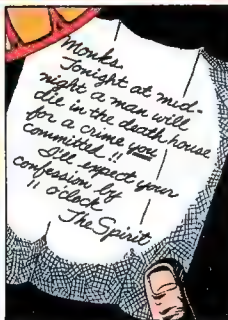 Monks.
Tonight at mid-
night a man will
die in the death house
for a crime you
committed!!
I'll expect your
confession by
11 o'clock
The Spirit